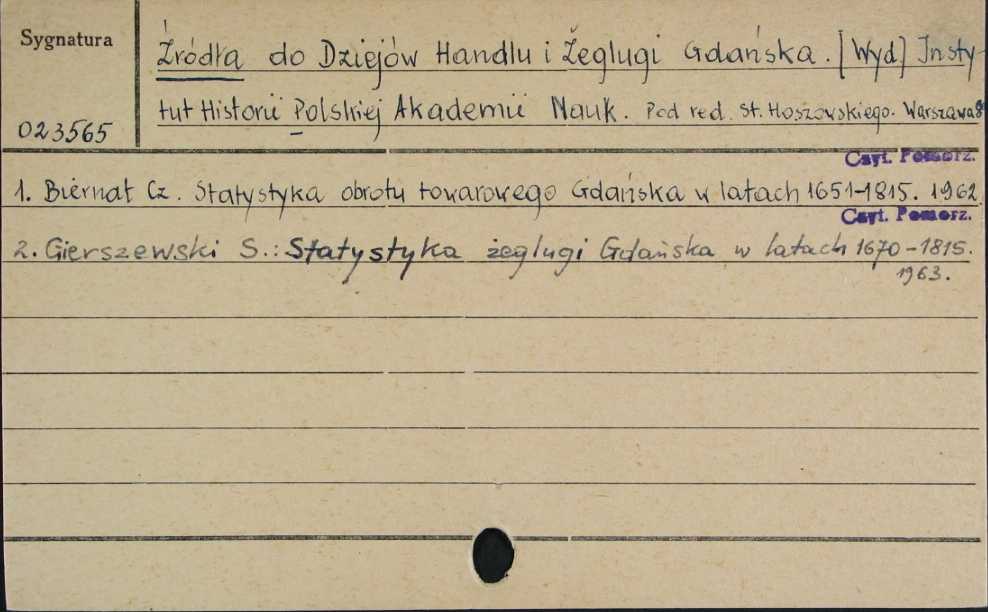 Sygnatura
Źródła do Dziejów Handlu i Żeglugi Gdańska. [Wyd] Insty-
tut Historii Polskiej Akademii Nauk. Pod red. St. Hoszowskiego. Warszawa
023565
Czyt. Pomorz.
1. Biernat Cz. Statystyka obrotu towarowego Gdańska w latach 1651-1815. 1962
Czyt. Pomorz.
2. Gierszewski S.: Statystyka żeglugi Gdańska w latach 1670-1815.
1963.